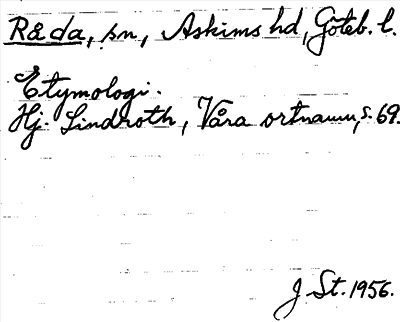 Råda, sn, Askims hd, Göteb. l.
Etymologi.
Hj. Lindroth, Våra ortnamn, s. 69.
J. St. 1956.